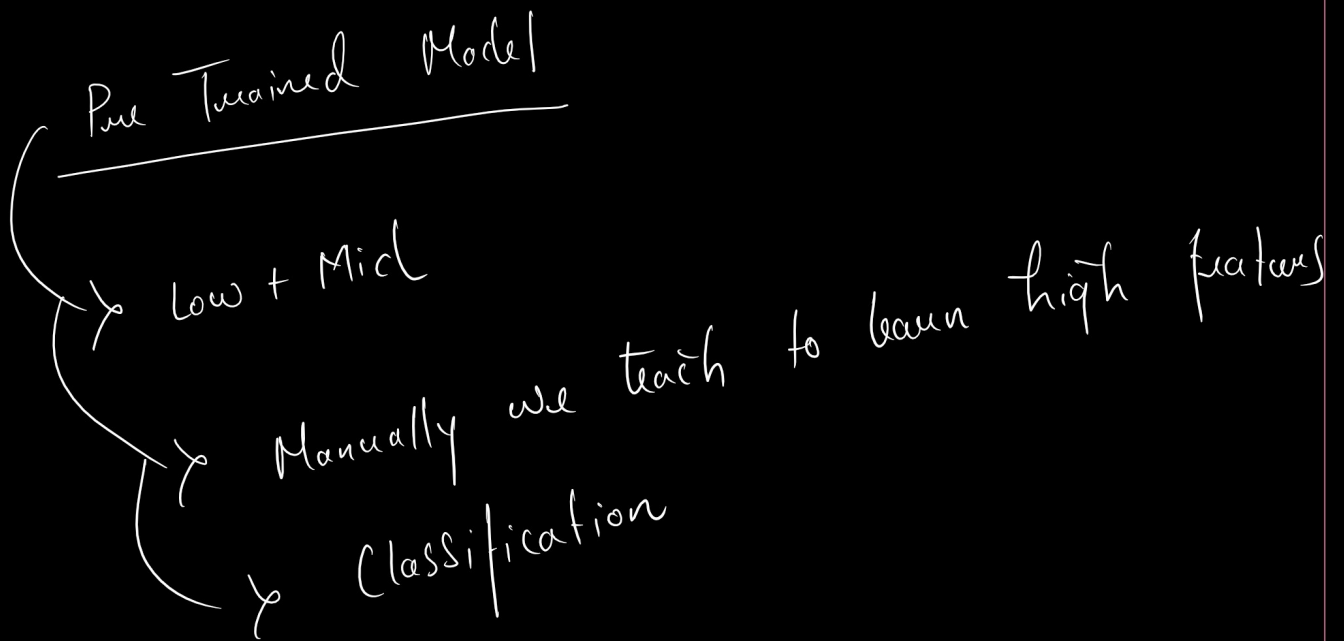 Pre Trained Model
Low + Mid
Manually we teach to learn high features
Classification